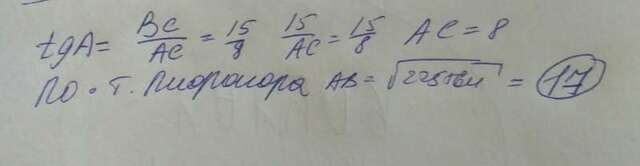 tgA = BC/AC = 15/8 15/AC = 15/8 AC = 8
ПО Т. Пифагора AB = √225+64 = 17